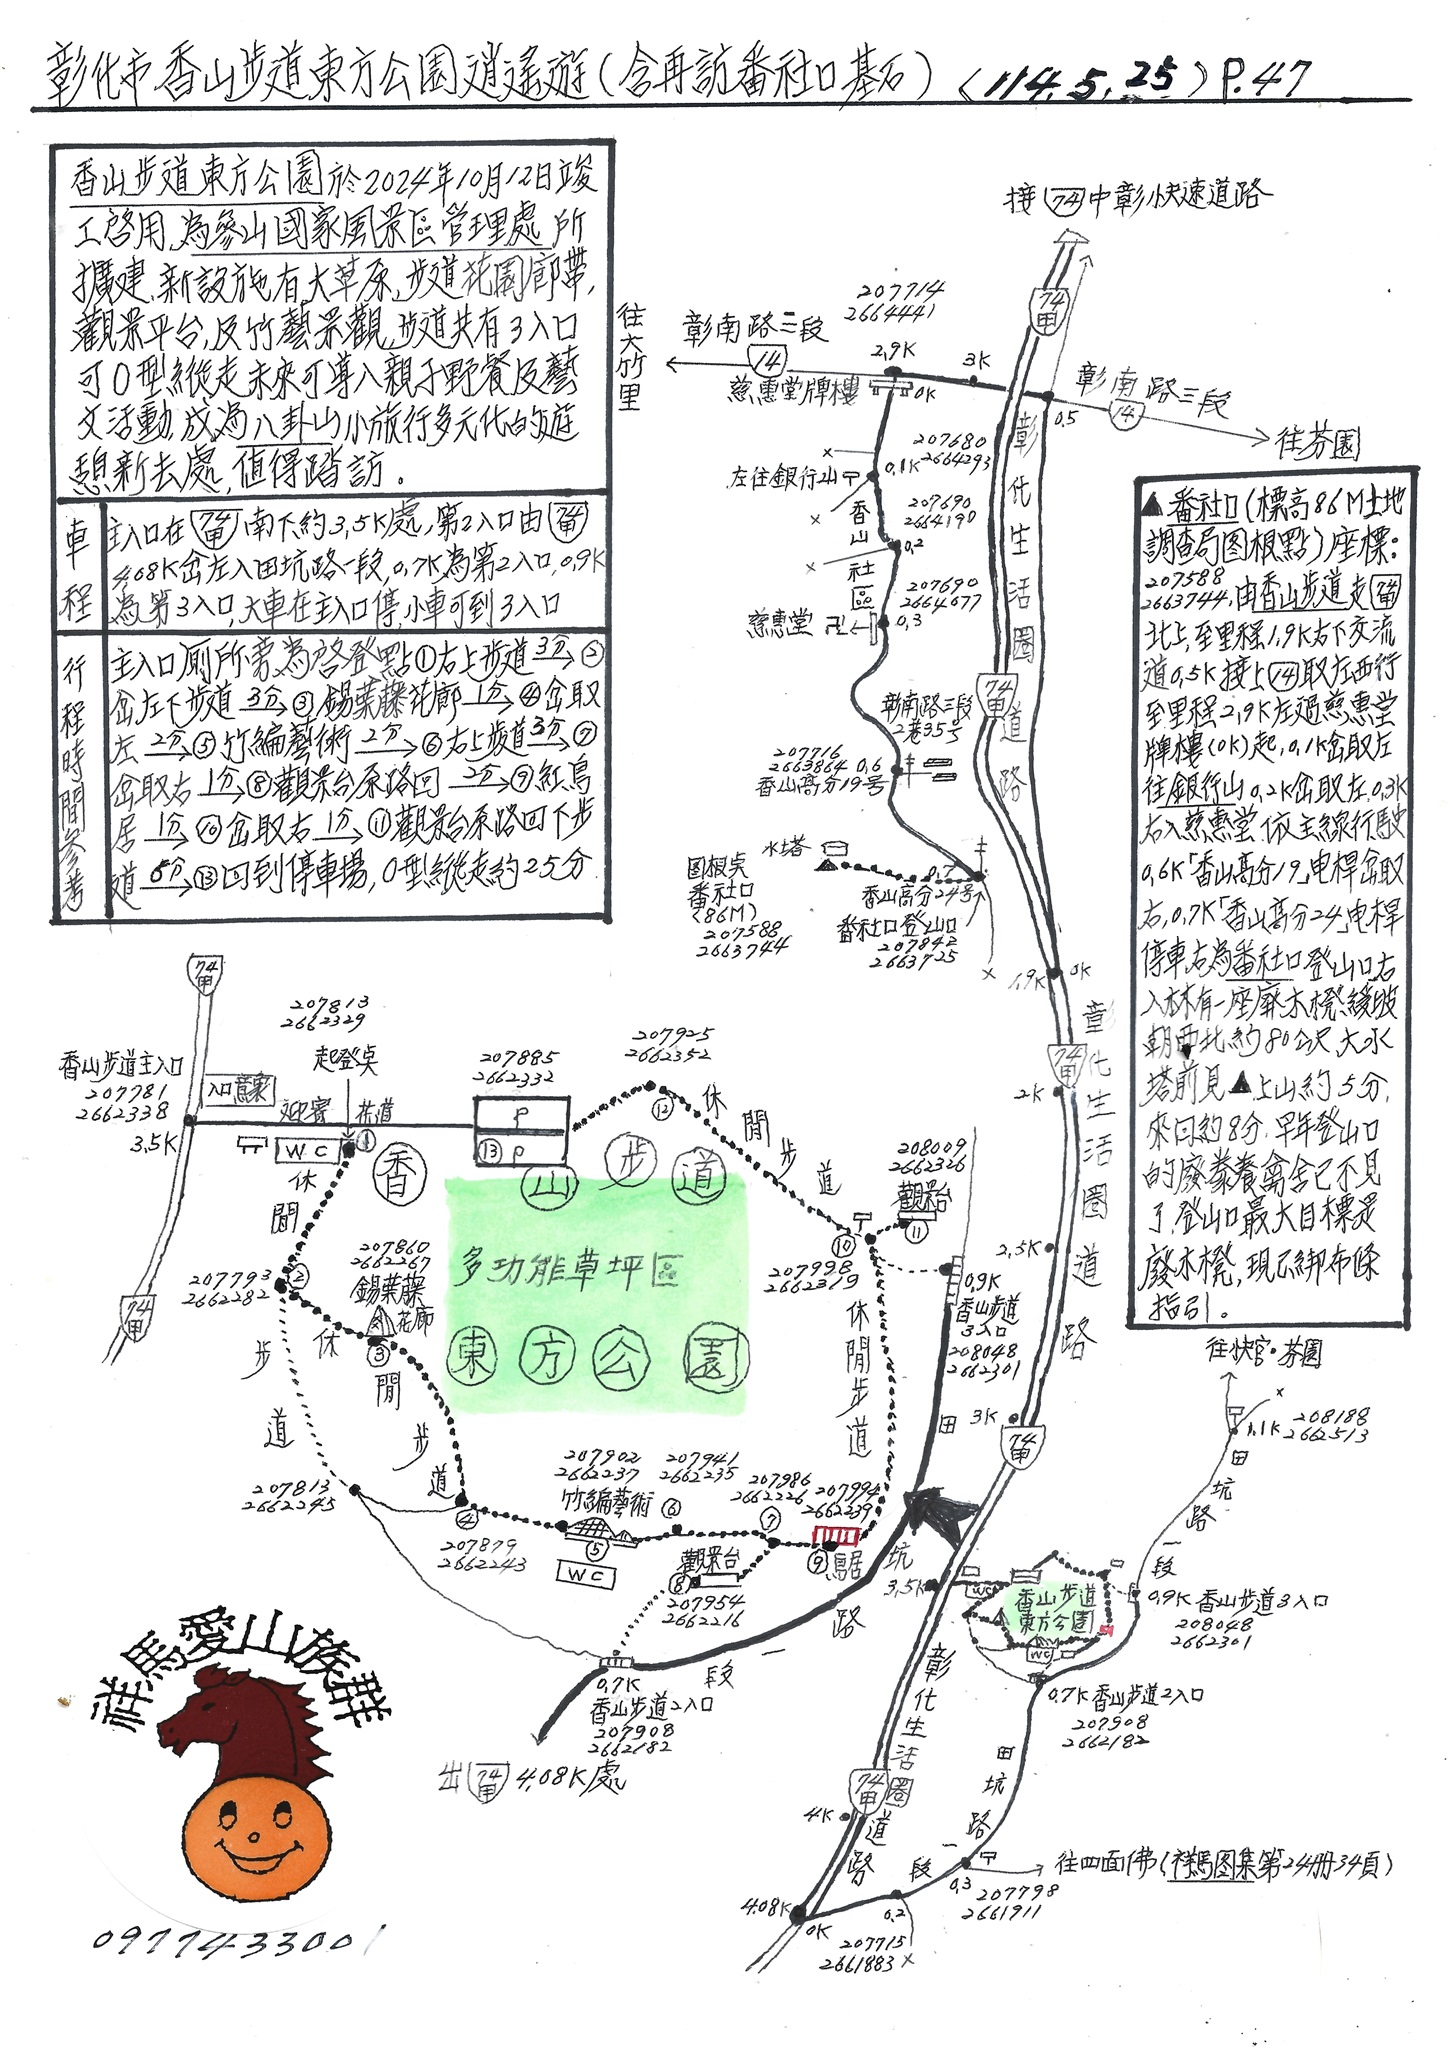 彰化市香山步道東方公園逍遙遊(含再訪番社口基石) <114.5.25> P.47
香山步道東方公園於2024年10月12日竣
工啓用,為參山國家風景區管理處所
擴建,新設施有大草原,步道花園廊帶,
觀景平台,及竹藝景觀,步道共有3入口
可O型縱走未來可導入親子野餐及藝
文活動,成為八卦山小旅行多元化的遊
憩新去處,值得踏訪。
車程
主入口在74甲南下約3.5K處,第2入口由74甲
4.08K岔左入田坑路一段,0.7K為第2入口,0.9K
為第3入口,大車在主入口停,小車可到3入口
行程時間參考
主入口廁所旁為啓登點①右上步道3分→②
岔左下步道3分→③錫葉藤花廊1分→④岔取
左2分→⑤竹編藝術2分→⑥右上步道3分→⑦
岔取右1分→⑧觀景台原路回2分→⑨紅鳥
居1分→⑩岔取右1分→⑪觀景台原路回下步
道5分→⑬回到停車場,O型縱走約25分
接74中彰快速道路
74甲
207714
2664441
往大竹里
彰南路三段
14
2.9K
3K
慈惠堂牌樓
0K
0.5
彰南路三段
14
往芬園
207680
2664293
左往銀行山
0.1K
207690
2664190
0.2
香山社區
207690
2664077
慈惠堂
0.3
彰化生活圈道路
74甲
彰南路三段
2巷35号
207716
2663864
0.6
香山高分19号
水塔
図根奌
番社口
(86M)
207588
2663744
0.7
香山高分24号
番社口登山口
207842
2663725
1.9K
0K
▲番社口(標高86M土地
調查局図根點)座標:
207588
2663744,由香山步道走74甲
北上,至里程1.9K右下交流
道0.5K接上74取左西行
至里程2.9K左過慈惠堂
牌樓(0K)起,0.1K岔取左
往銀行山0.2K岔取左,0.3K
右入慈惠堂,依主線行駛
0.6K「香山高分19」电桿岔取
右,0.7K「香山高分24」电桿
停車右為番社口登山口,右
入林有一座廢木橙,緩坡
朝西北約80公尺大水
塔前見▲上山約5分,
來回約8分,早年登山口
的廢棄養禽舍已不見
了,登山口最大目標是
廢木橙,現已綁布條
指引。
74甲
207813
2662329
起登奌
香山步道主入口
207781
2662338
3.5K
入口意象
迎賓
花道
WC
①
207885
2662332
P
⑬ P
207925
2662352
⑫
休閒步道
香山步道
多功能草坪區
東方公園
休閒步道
207793
2662282
②
207860
2662267
錫葉藤
花廊
③
休閒步道
步道
207813
2662245
④
207879
2662243
207902
2662237
竹編藝術
⑤
WC
207941
2662235
⑥
207986
2662226
⑦
觀景台
⑧
207954
2662216
207994
2662239
⑨鳥居
休閒步道
⑩
207998
2662319
208009
2662326
觀景台
⑪
0.9K
香山步道
3入口
208048
2662301
田坑路一段
0.7K
香山步道2入口
207908
2662182
出74甲 4.08K處
74甲
74甲
2K
2.5K
3K
彰化生活圈道路
74甲
3.5K
往快官·芬園
1.1K
208188
2662513
田坑路一段
WC
香山步道
東方公園
WC
0.9K香山步道3入口
208048
2662301
0.7K香山步道2入口
207908
2662182
田坑路一段
彰化生活圈道路
74甲
4K
4.08K
0K
0.2
207715
2661883
0.3
207798
2661911
往四面佛(祥馬図集第24册34頁)
祥馬愛山族群
0977433001